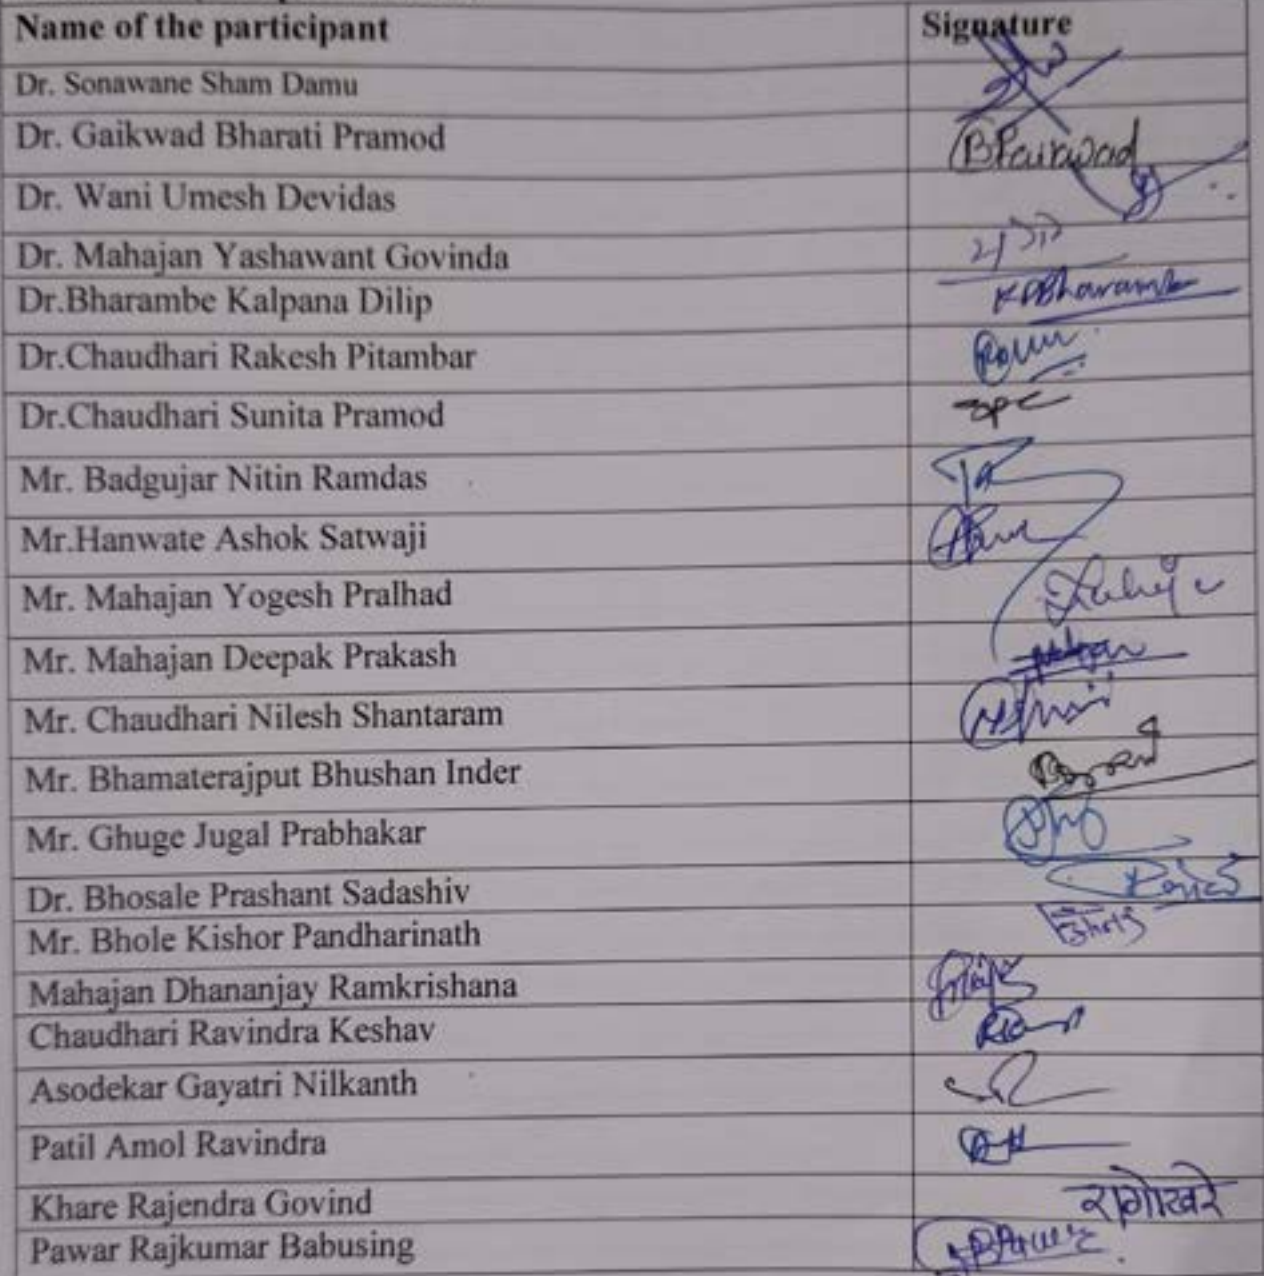 Name of the participant Signature
Dr. Sonawane Sham Damu
Dr. Gaikwad Bharati Pramod
Dr. Wani Umesh Devidas
Dr. Mahajan Yashawant Govinda
Dr.Bharambe Kalpana Dilip KDBharambe
Dr.Chaudhari Rakesh Pitambar
Dr.Chaudhari Sunita Pramod spc
Mr. Badgujar Nitin Ramdas
Mr.Hanwate Ashok Satwaji
Mr. Mahajan Yogesh Pralhad
Mr. Mahajan Deepak Prakash
Mr. Chaudhari Nilesh Shantaram
Mr. Bhamaterajput Bhushan Inder
Mr. Ghuge Jugal Prabhakar
Dr. Bhosale Prashant Sadashiv
Mr. Bhole Kishor Pandharinath
Mahajan Dhananjay Ramkrishana
Chaudhari Ravindra Keshav
Asodekar Gayatri Nilkanth
Patil Amol Ravindra
Khare Rajendra Govind रागोखरे
Pawar Rajkumar Babusing